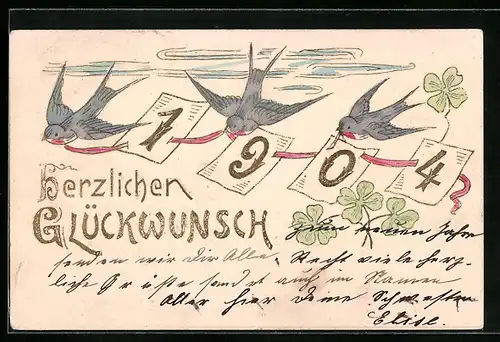 1 9 0 4
Herzlichen
GLÜCKWUNSCH
zum neuen Jahre
senden wir Dir Alle. Recht viele herz-
liche Grüße sendet auch im Namen
Aller hier Deine Schwester
Elise.